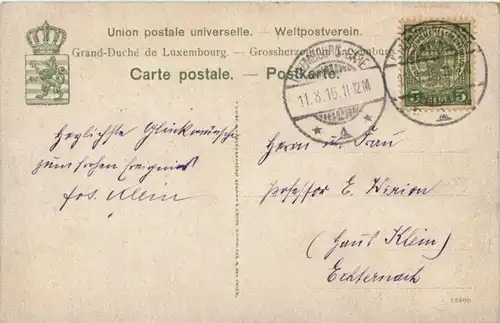 Union postale universelle. — Weltpostverein.
Grand-Duché de Luxembourg. — Grossherzogtum Luxemburg
Carte postale. — Postkarte.
LUXEMBOURG-GARE
11.8.16. 11-12M
4
5 5
Herzlichste Glückwünsche
zum frohen Ereignis
Jos. Klein
Herrn u. Frau
Professor E. Wirion
(Haus Klein)
Echternach